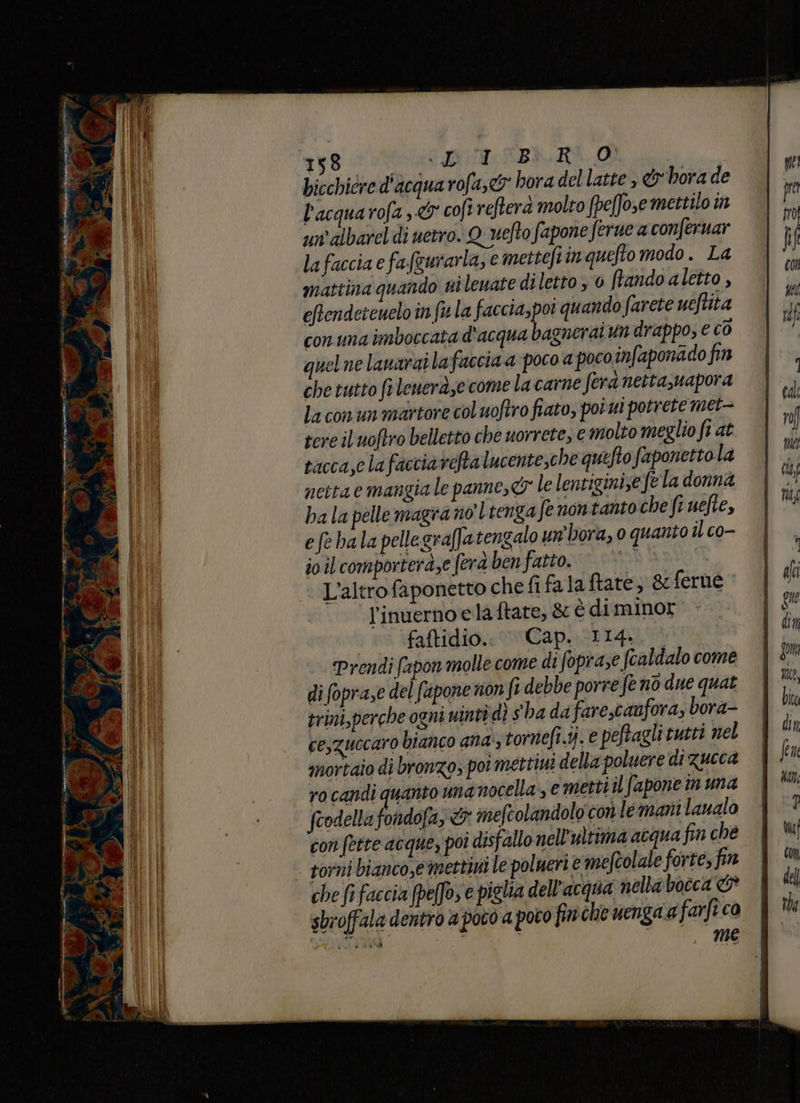 158 L I B R O
bicchiere d'acqua rosa,& hora del latte, & hora de
l'acqua rosa, & cosi resterà molto spesso,e mettilo in
un'albarel di uetro. Q uesto sapone serue a conseruar
la faccia e fa scurarla, e mettesi in questo modo. La
mattina quando ui leuate di letto, o stando a letto,
estendeteuelo in su la faccia,poi quando sarete uestita
con una imboccata d'acqua bagnerai un drappo, e cō
quel ne lauarai la faccia a poco a poco insaponādo fin
che tutto si leuerà,e come la carne serà netta,uapora
la con un martore col uostro fiato, poi ui potrete met-
tere il uostro belletto che uorrete, e molto meglio si at
tacca,e la faccia resta lucente,che questo saponetto la
netta e mangia le panne,& le lentigini,e se la donna
ha la pelle magra no'l tenga se non tanto che si ueste,
e se ha la pelle grassa tengalo un'hora, o quanto il co-
io il comporterà,e serà ben fatto.
L'altro saponetto che si fa la state, & serue
l'inuerno e la state, & è di minor
fastidio. Cap. 114.
Prendi sapon molle come di sopra,e scaldalo come
di sopra,e del sapone non si debbe porre se nō due quat
trini,perche ogni uinti dì s'ha da fare,canfora, bora-
ce,zuccaro bianco ana, tornesi.ij. e pestagli tutti nel
mortaio di bronzo, poi mettiui della poluere di zucca
ro candi quanto una nocella, e metti il sapone in una
scodella fondosa, & mescolandolo con le mani laualo
con sette acque, poi disfallo nell'ultima acqua fin che
torni bianco,e mettiui le polueri e mescolale forte, fin
che si faccia spesso, e piglia dell'acqua nella bocca &
sbroffala dentro a poco a poco fin che uenga a farsi co
me